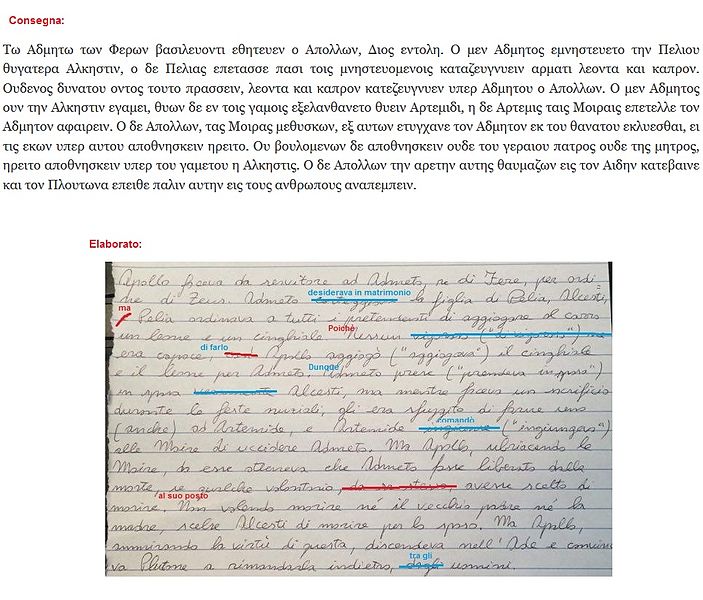 Consegna:
Τω Αδμητω των Φερων βασιλευοντι εθητευεν ο Απολλων, Διος εντολη. Ο μεν Αδμητος εμνηστευετο την Πελιου
θυγατερα Αλκηστιν, ο δε Πελιας επετασσε πασι τοις μνηστευομενοις καταζευγνυειν αρματι λεοντα και καπρον.
Ουδενος δυνατου οντος τουτο πρασσειν, λεοντα και καπρον κατεζευγνυεν υπερ Αδμητου ο Απολλων. Ο μεν Αδμητος
ουν την Αλκηστιν εγαμει, θυων δε εν τοις γαμοις εξελανθανετο θυειν Αρτεμιδι, η δε Αρτεμις ταις Μοιραις επετελλε τον
Αδμητον αφαιρειν. Ο δε Απολλων, τας Μοιρας μεθυσκων, εξ αυτων ετυγχανε τον Αδμητον εκ του θανατου εκλυεσθαι, ει
τις εκων υπερ αυτου αποθνησκειν ηρειτο. Ου βουλομενων δε αποθνησκειν ουδε του γεραιου πατρος ουδε της μητρος,
ηρειτο αποθνησκειν υπερ του γαμετου η Αλκηστις. Ο δε Απολλων την αρετην αυτης θαυμαζων εις τον Αιδην κατεβαινε
και τον Πλουτωνα επειθε παλιν αυτην εις τους ανθρωπους αναπεμπειν.
Elaborato:
Apollo faceva da servitore ad Admeto, re di Fere, per ordi
ne di Zeus. Admeto desiderava in matrimonio la figlia di Pelia, Alcesti,
ma Pelia ordinava a tutti i pretendenti di aggiogare al carro
un leone e un cinghiale. Poichè Nessun
era capace, di farlo Apollo aggiogò ("aggiogava") il cinghiale
e il leone per Admeto. Dunque Admeto prese ("prendeva in sposa")
in sposa Alcesti, ma mentre faceva un sacrificio
durante le feste nuziali, gli era sfuggito di farne uno
(anche) ad Artemide, e Artemide comandò ("ingiungeva")
alle Moire di uccidere Admeto. Ma Apollo, ubriacando le
Moire, da esse otteneva che Admeto fosse liberato dalla
morte, se qualche volontario, da se stesso avesse scelto di
morire. al suo posto Non volendo morire né il vecchio padre né la
madre, scelse Alcesti di morire per lo sposo. Ma Apollo,
ammirando la virtù di questa, discendeva nell'Ade e convince
va Plutone a rimandarla indietro, tra gli dagli uomini.